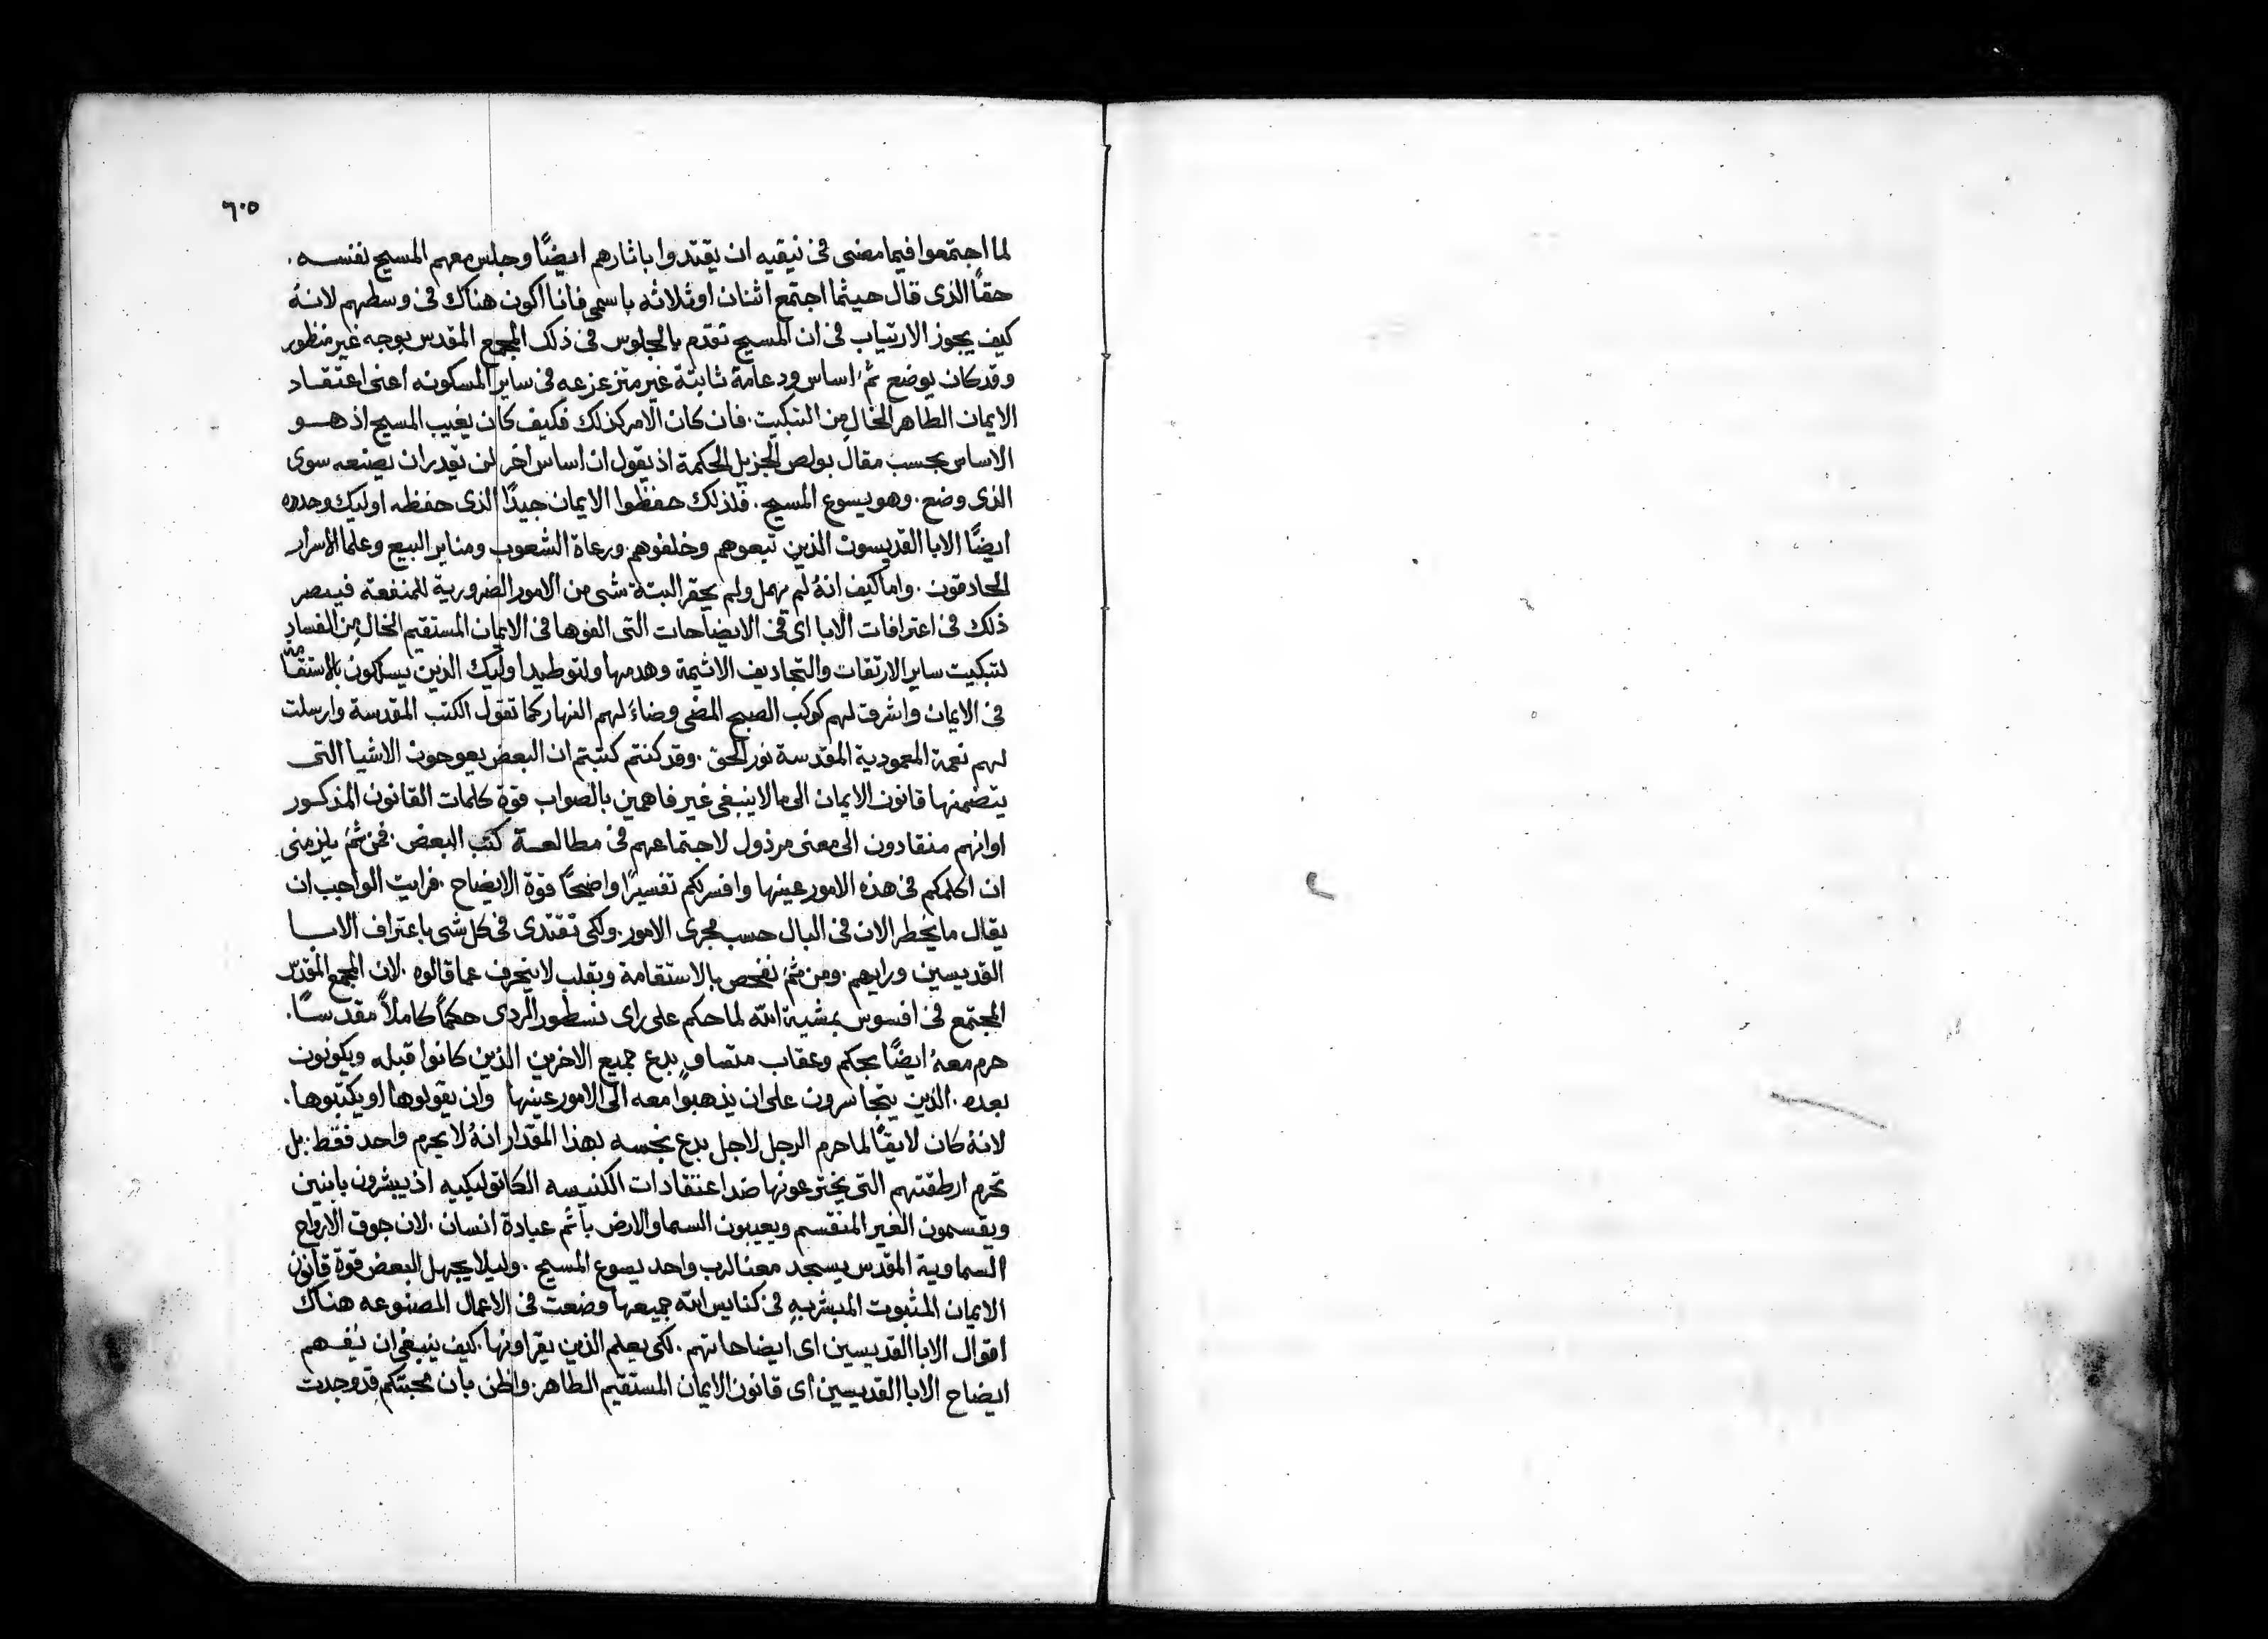 ٦٠٥
لما اجتمعوا فيما مضى فى نيقيه ان يقتدوا باثارهم ايضًا وجلس معهم المسيح نفسه.
حقًا الذى قال حيثما اجتمع اثنان او ثلاثه باسمى فانا اكون هناك فى وسطهم لانهُ
كيف يجوز الارتياب فى ان المسيح تقدم بالجلوس فى ذلك المجمع المقدس بوجه غير منظور
وقد كان يوضع ثم اساس ودعامة ثابتة غير متزعزعه فى ساير المسكونه اعنى اعتقاد
الايمان الطاهر الخالِ من التبكيت. فان كان الامر كذلك فكيف كان يغيب المسيح اذ هو
الاساس بحسب مقال بولص الجزيل الحكمة اذ يقول ان اساس اخر لن تقدر ان يصنعه سوى
الذى وضع. وهو يسوع المسيح. فلذلك حفظوا الايمان جيدًا الذى حفظه اوليك وحدده
ايضًا الابا القديسون الذين تبعوهم وخلفوهم. ورعاة الشعوب ومناير البيع وعلما الاسرار
الحاذقون. واما كيف انهُ لم يهمل ولم يحقر البتة شى من الامور الضرورية للمنفعة فيبصر
ذلك فى اعترافات الابا اى فى الايضاحات التى الفوها فى الايمان المستقيم الخالِ من الفساد
لتبكيت ساير الارتقات والتجاديف الاثيمة وهدمها ولتوطيد اوليك الذين يسلكون بالاستقامة
فى الايمان واشرق لهم كوكب الصبح المضى وضاءَ لهم النهار كما تقول الكتب المقدسة وارسلت
لهم نعمة المعمودية المقدسة نور الحق. وقد كنتم كتبتم ان البعض يعوجون الاشيا التى
يتضمنها قانون الايمان الى ما لا ينبغى غير فاهمين بالصواب قوة كلمات القانون المذكور
او انهم منقادون الى معنى مرذول لاجتماعهم فى مطالعة كتب البعض. فمن ثم يلزمنى
ان اكلمكم فى هذه الامور عينها وافسر لكم تفسيرًا واضحًا قوة الايضاح. فرايت الواجب ان
يقال ما يخطر الان فى البال حسب مجرى الامور. ولكى تقتدى فى كل شى باعتراف الابا
القديسين ورايهم. ومن ثم نفحص بالاستقامة وبقلب لا ينحرف عما قالوه. لان المجمع المقدس
المجتمع فى افسوس بمشية الله لما حكم على راى نسطور الردى حكمًا كاملاً مقدسًا.
حرم معهُ ايضًا بحكم وعقاب متصاوٍ بدع جميع الاخرين الذين كانوا قبله ويكونون
بعده. الذين يتجاسرون على ان يذهبوا معه الى الامور عينها وان يقولوها او يكتبوها.
لانهُ كان لايقًا لما حرم الرجل لاجل بدع نجسه بهذا المقدار انهُ لا يحرم واحد فقط. بل
تحرم ارطقتهم التى يخترعونها ضد اعتقادات الكنيسه الكاتوليكيه اذ يبشرون بابنين
ويقسمون الغير المنقسم ويعيبون السما والارض باثم عبادة انسان. لان جوق الارواح
السماوية المقدس يسجد معنا لرب واحد يسوع المسيح. وليلا يجهل البعض قوة قانون
الايمان المثبوت المبشر بهِ فى كنايس الله جميعها وضعت فى الاعمال المصنوعه هناك
اقوال الابا القديسين اى ايضاحاتهم. لكى يعلم الذين يقراونها. كيف ينبغى ان يفهم
ايضاح الابا القديسين اى قانون الايمان المستقيم الطاهر. واظن بان محبتكم قد وجدت